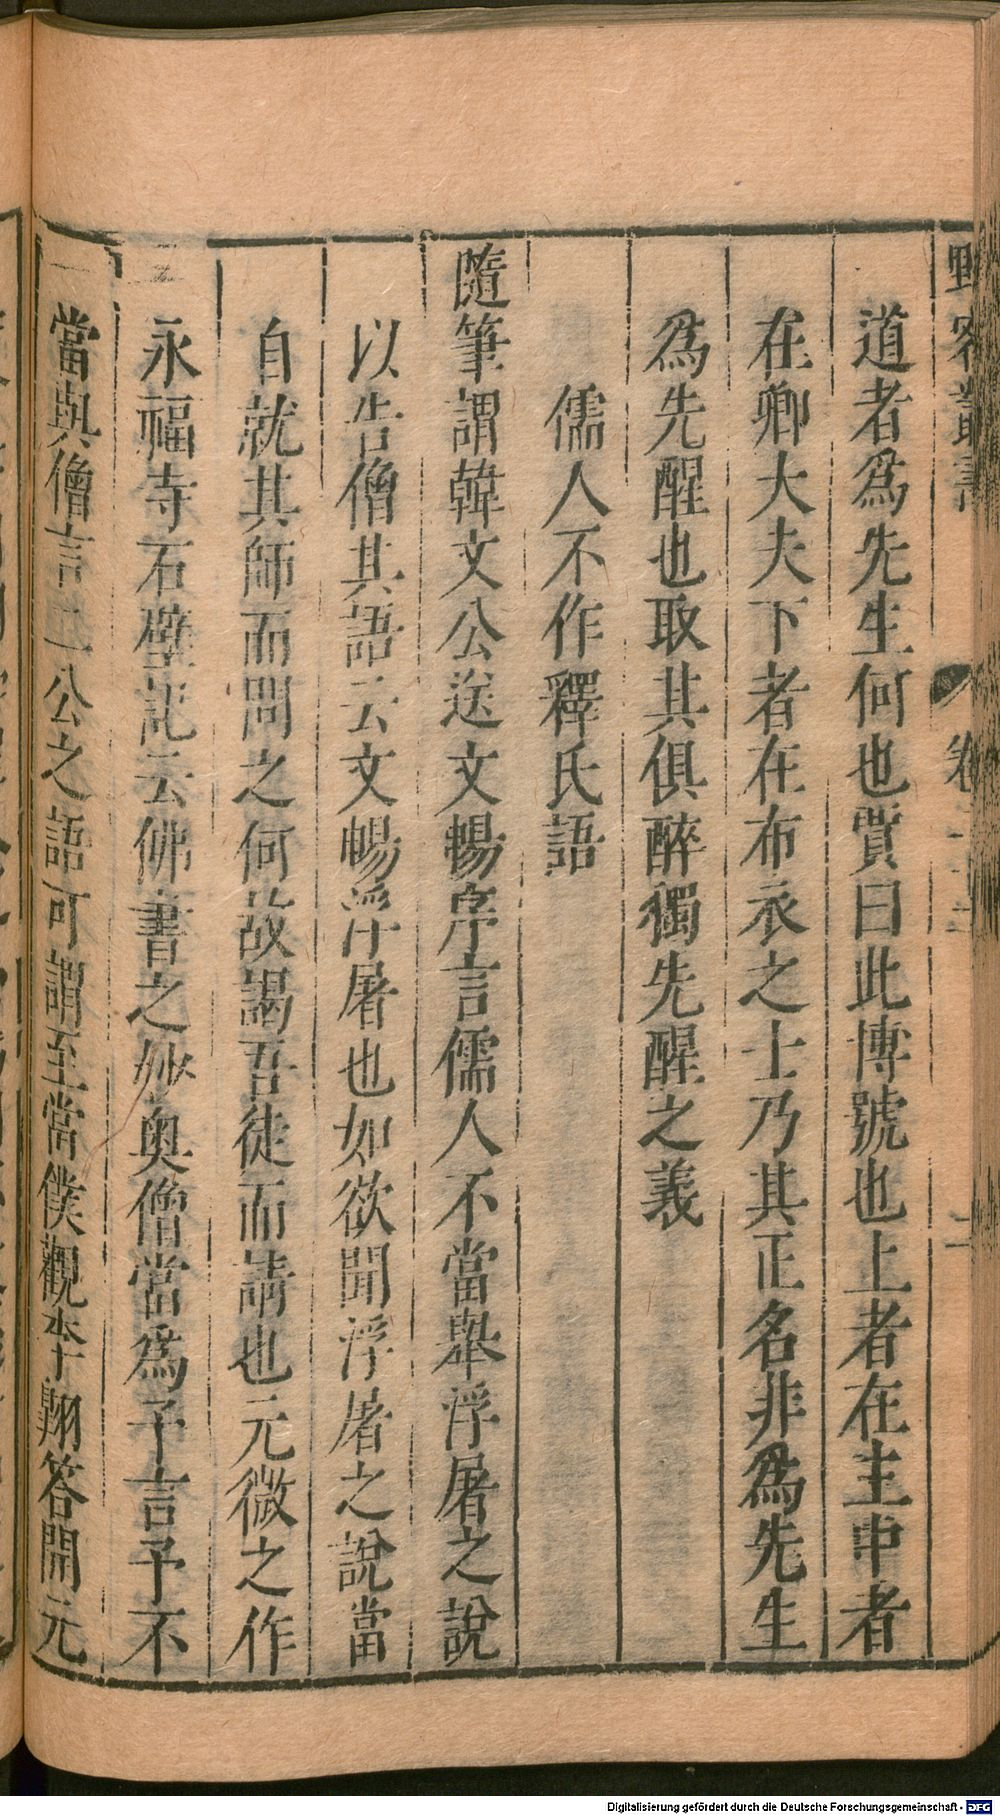 野客叢書　卷二
道者爲先生何也賈曰此博號也上者在主中者
在卿大夫下者在布衣之士乃其正名非爲先生
爲先醒也取其俱醉獨先醒之義
儒人不作釋氏語
隨筆謂韓文公送文暢序言儒人不當舉浮屠之說
以告僧其語云文暢浮屠也如欲聞浮屠之說當
自就其師而問之何故謁吾徒而請也元微之作
永福寺石壁記云佛書之妙奧僧當爲予言予不
當與僧言二公之語可謂至當僕觀李翔答開元
Digitalisierung gefördert durch die Deutsche Forschungsgemeinschaft - DFG